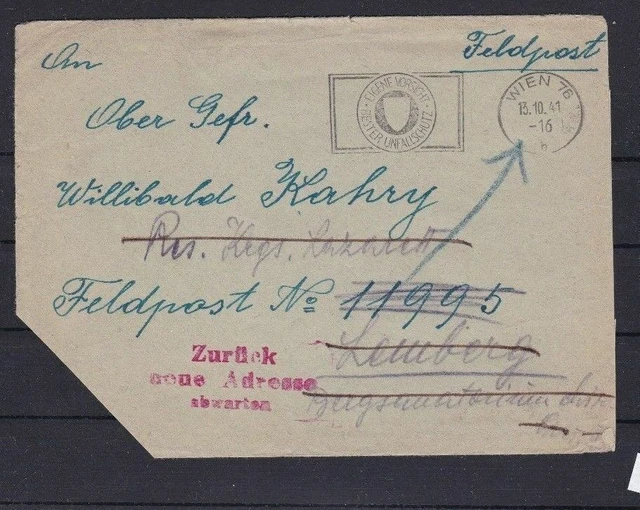 Feldpost
An
EIGENE VORSICHT
BESTER UNFALLSCHUTZ
WIEN 76
13.10.41
-16
h
Ober Gefr.
Willibald Kahry
Res. Krgs. Lazarett
Feldpost No 11995
Lemberg
Zurück
neue Adresse
abwarten